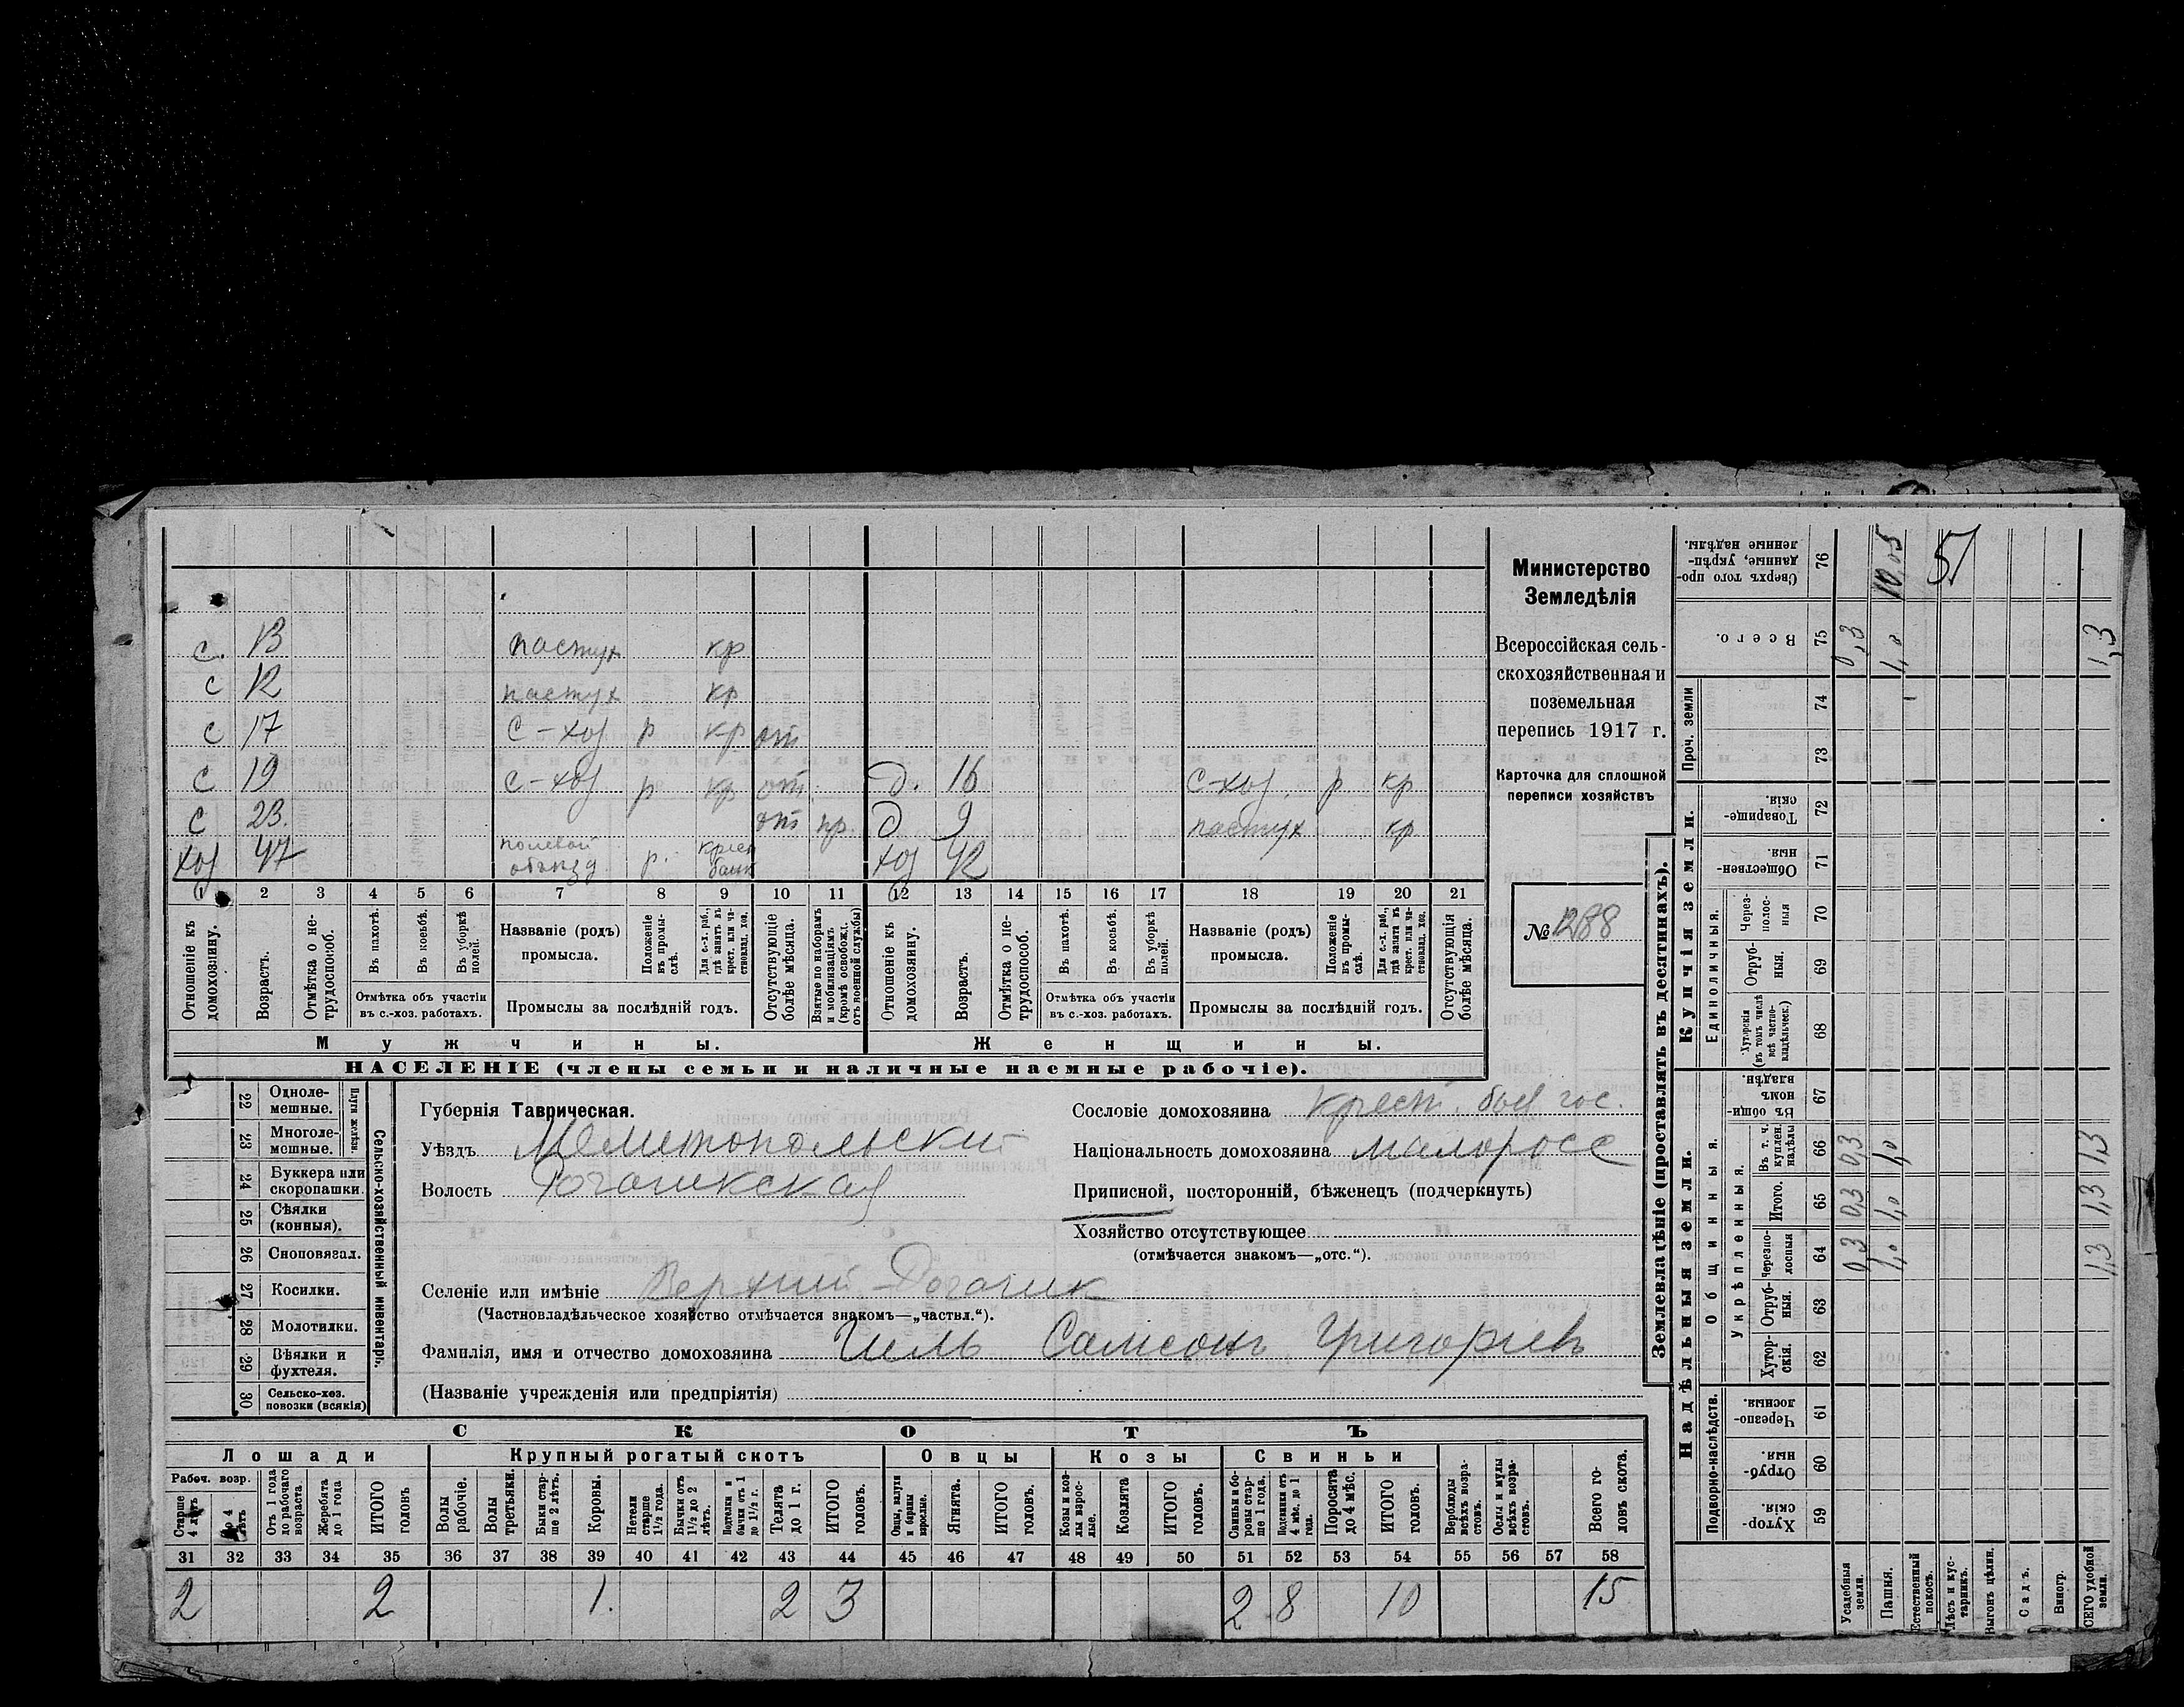 Министерство
Земледѣлія
Всероссійская сель-
скохозяйственная и
поземельная
перепись 1917 г.
Карточка для сплошной
переписи хозяйствъ
№ 1288
с. 13 пастух кр
с 12 пастух кр
с 17 с-хоз р кр от
с 19 с-хоз р кр от д. 16 с-хоз р кр
с 23. от пр. д 9 пастух кр
хоз 47 полевой объезд р. крест банк хоз 42
1 2 3 4 5 6 7 8 9 10 11 12 13 14 15 16 17 18 19 20 21
Отношеніе къ домохозяину.
Возрастъ.
Отмѣтка о не-трудоспособ.
Въ пахотѣ.
Въ косьбѣ.
Въ уборкѣ полей.
Отмѣтка объ участіи въ с.-хоз. работахъ.
Названіе (родъ) промысла.
Положеніе въ промы-слѣ.
Для с.-х. раб., гдѣ занятъ въ крест. или ча-стновлад. хоз.
Промыслы за послѣдній годъ.
Отсутствующіе болѣе мѣсяца.
Взятые по наборамъ и мобилизаціямъ (кромѣ освобожд. отъ военной службы)
Отношеніе къ домохозяину.
Возрастъ.
Отмѣтка о не-трудоспособ.
Въ пахотѣ.
Въ косьбѣ.
Въ уборкѣ полей.
Отмѣтка объ участіи въ с.-хоз. работахъ.
Названіе (родъ) промысла.
Положеніе въ промы-слѣ.
Для с.-х. раб., гдѣ занятъ въ крест. или ча-стновлад. хоз.
Промыслы за послѣдній годъ.
Отсутствующіе болѣе мѣсяца.
Мужчины. Женщины.
НАСЕЛЕНІЕ (члены семьи и наличные наемные рабочіе).
Сельско-хозяйственный инвентарь.
Плуги желѣзн.
22 Одноле-мешные.
23 Многоле-мешные.
24 Буккера или скоропашки.
25 Сѣялки (конныя).
26 Сноповязал.
27 Косилки.
28 Молотилки.
29 Вѣялки и фухтеля.
30 Сельско-хоз. повозки (всякія)
Губернія Таврическая.
Уѣздъ Мелитопольский
Волость Рогачикская
Селеніе или имѣніе Верхний-Рогачик
(Частновладѣльческое хозяйство отмѣчается знакомъ—„частвл.“).
Фамилія, имя и отчество домохозяина Чель Самсонъ Григорьев
(Названіе учрежденія или предпріятія)
Сословіе домохозяина крест. быв гос.
Національность домохозяина малоросс
Приписной, посторонній, бѣженецъ (подчеркнуть)
Хозяйство отсутствующее
(отмѣчается знакомъ—„отс.“).
СКОТЪ
Лошади Крупный рогатый скотъ Овцы Козы Свиньи
Рабоч. возр.
Старше 4 лѣтъ
До 4 лѣтъ
Отъ 1 года до рабочаго возраста
Жеребята до 1 года
ИТОГО головъ
Волы рабочіе.
Волы третьяки.
Быки стар-ше 2 лѣтъ.
Коровы.
Нетели старше 1½ года.
Бычки отъ 1½ до 2 лѣтъ.
Подтелки и бычки отъ 1 до 1½ г.
Телята до 1 г.
ИТОГО головъ.
Овцы, валухи и бараны взрослые.
Ягнята.
ИТОГО головъ.
Козы и коз-лы взрос-лые.
Козлята
ИТОГО головъ.
Свиньи и бо-ровы стар-ше 1 года.
Подсвинки отъ 4 мѣс. до 1 года.
Поросята до 4 мѣс.
ИТОГО головъ.
Верблюды всѣхъ возра-стовъ.
Ослы и мулы всѣхъ возра-стовъ.
Всего го-ловъ скота.
31 32 33 34 35 36 37 38 39 40 41 42 43 44 45 46 47 48 49 50 51 52 53 54 55 56 57 58
2 2 1. 2 3 2 8 10 15
Землевладѣніе (проставлять въ десятинахъ).
Надѣльныя земли. Купчія земли. Проч. земли
Подворно-наслѣдств.
Общинныя.
Укрѣпленныя.
Единоличныя.
Хутор-скія. 59
Отруб-ныя. 60
Черезпо-лосныя 61
Хутор-скія. 62
Отруб-ныя. 63
Черезпо-лосныя 64
Итого. 65
Въ т. ч. куплен. надѣлы 66
Въ общин-номъ владѣн. 67
Хуторскія (въ томъ числѣ всѣ частно-владѣльческ.) 68
Отруб-ныя. 69
Через-полос-ныя 70
Обществен-ныя. 71
Товарище-скія. 72
73
74
Всего. 75
Сверхъ того про-данные, укрѣп-ленные надѣлы. 76
Усадебныя земли. 0,3 0,3 0,3 0,3
Пашня. 1,0 1,0 1,0 1,0 10,05
Естественный покосъ.
Лѣсъ и кус-тарникъ.
Выгонъ цѣлин.
Садъ.
Виногр.
ВСЕГО удобной земли. 1,3 1,3 1,3 1,3
51